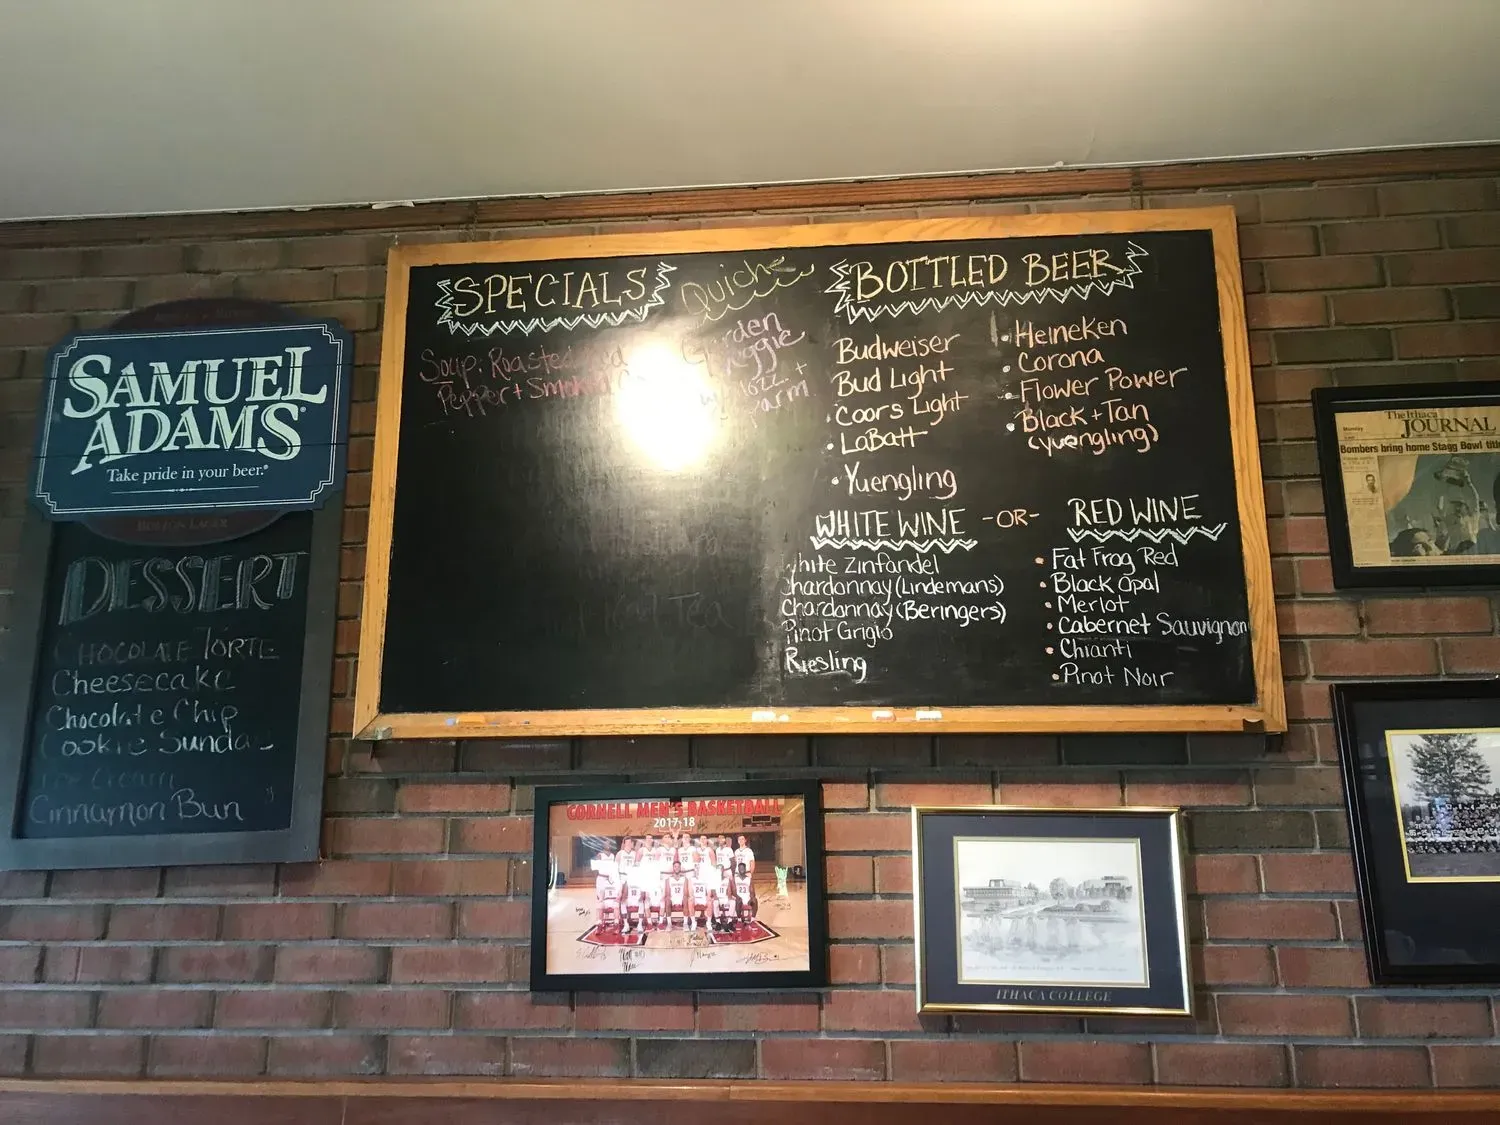 SAMUEL
ADAMS
Take pride in your beer.®
BOSTON LAGER
DESSERT
CHOCOLATE TORTE
Cheesecake
Chocolate Chip
Cookie Sundae
Ice Cream
Cinnamon Bun "
SPECIALS
Soup: Roasted Red
Pepper + Smoked
Quiche
Garden
Veggie
w/ Mozz +
Parm
BOTTLED BEER
Budweiser
Bud Light
• Coors Light
• LaBatt
• Yuengling
• Heineken
• Corona
• Flower Power
• Black + Tan
(yuengling)
WHITE WINE -OR- RED WINE
White Zinfandel
Chardonnay (Lindemans)
Chardonnay (Beringers)
Pinot Grigio
Riesling
• Fat Frog Red
• Black Opal
• Merlot
• Cabernet Sauvignon
• Chianti
• Pinot Noir
The Ithaca
JOURNAL
Monday
Bombers bring home Stagg Bowl title
CORNELL MEN'S BASKETBALL
2017-18
ITHACA COLLEGE